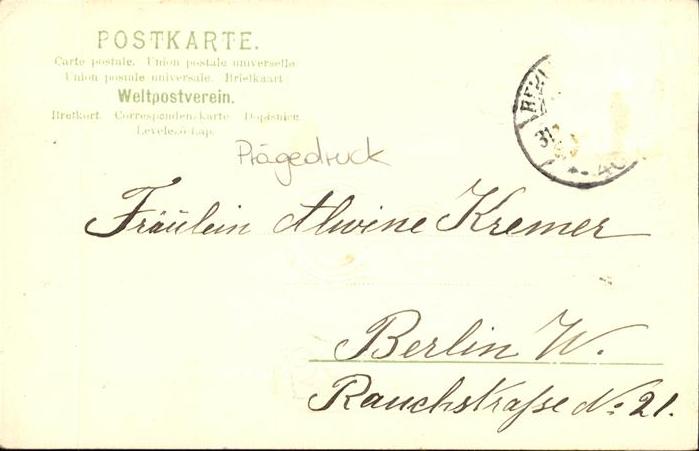 POSTKARTE.
Carte postale. Union postale universelle
Union postale universale. Briefkaart
Weltpostverein.
Brefkort. Correspondenzkarte Dopisnice
Levelező-Lap.
Prägedruck
Fräulein Alwine Kremer
Berlin W.
Rauchstraße No. 21.